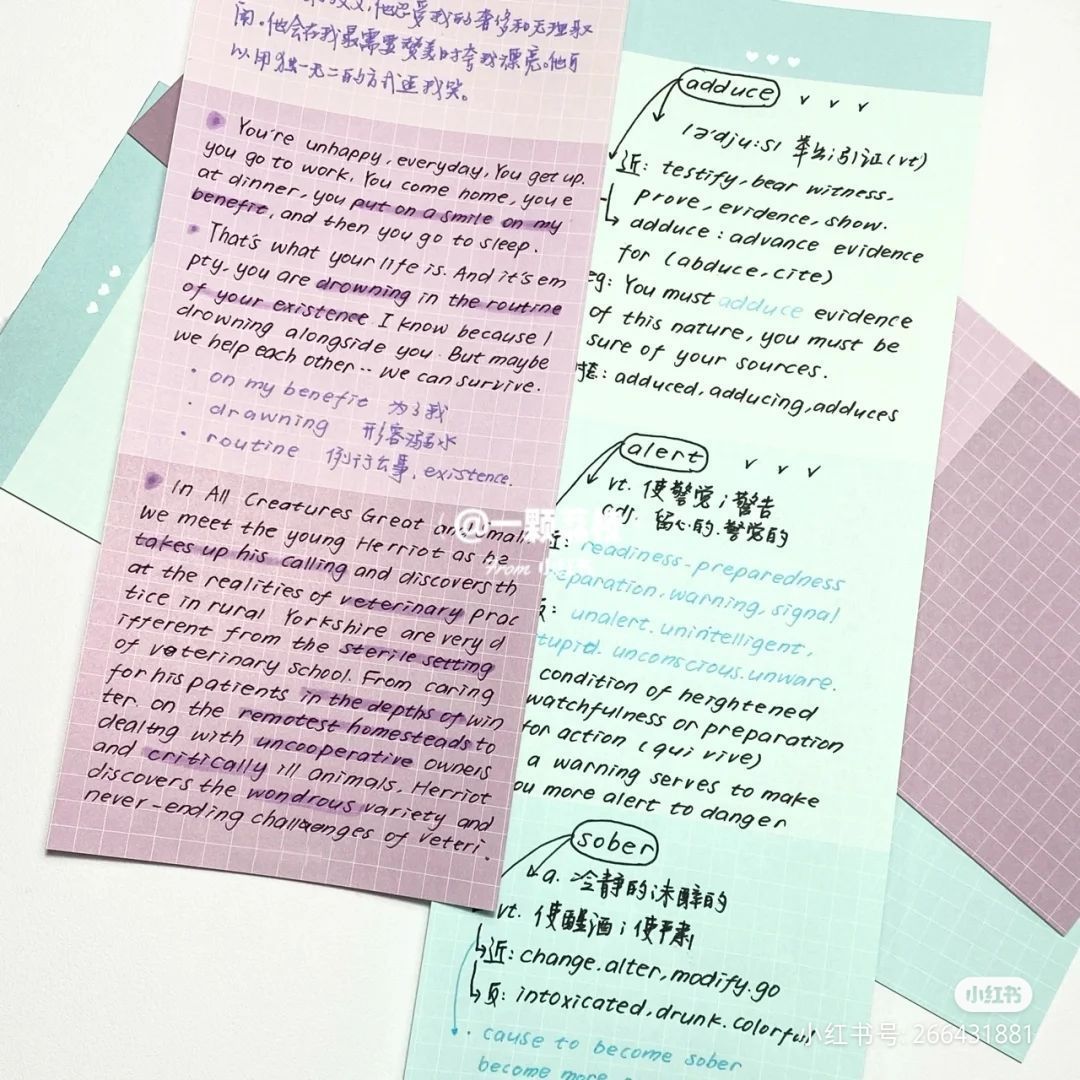 他忍受我的奢侈和无理取
闹。他会在我最需要赞美时夸我漂亮。他可
以用独一无二的方式逗我笑。
You're unhappy, everyday, You get up.
you go to work. You come home, you e
at dinner, you put on a smile on my
benefit, and then you go to sleep.
That's what your life is. And it's em
pty, you are drowning in the routine
of your existence. I know because I
drowning alongside you. But maybe
we help each other.. We can survive.
on my benefit 为了我
drawning 形容溺水
routine 例行公事, existence.
In All Creatures Great and Small
We meet the young Herriot as he
takes up his calling and discovers th
at the realities of veterinary prac
tice in rural Yorkshire are very d
ifferent from the sterile setting
of veterinary school. From caring
for his patients in the depths of win
ter. on the remotest homesteads to
dealing with uncooperative owners
and critically ill animals, Herriot
discovers the wondrous variety and
never-ending challenges of veteri.
adduce
/ə'dju:s/ 举出;引证(vt)
近: testify, bear witness,
prove, evidence, show.
adduce: advance evidence
for (abduce, cite)
eg: You must adduce evidence
of this nature, you must be
sure of your sources.
adduced, adducing, adduces
alert
vt. 使警觉;警告
adj. 留心的.警觉的
近: readiness-preparedness
eparation, warning, signal
反: unalert. unintelligent,
tupid. unconscious. unware.
condition of heightened
watchfulness or preparation
for action (qui vive)
a warning serves to make
ou more alert to danger
sober
a. 冷静的;未醉的
vt. 使醒酒;使严肃
近: change. alter, modify. go
反: intoxicated, drunk. colorful
cause to become sober
become more
@一颗
from 小红书
小红书
小红书号: 266431881